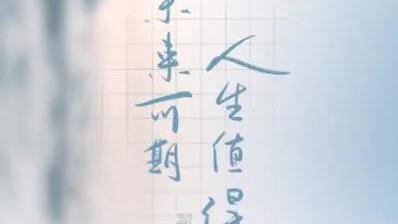 未来可期
人生值得